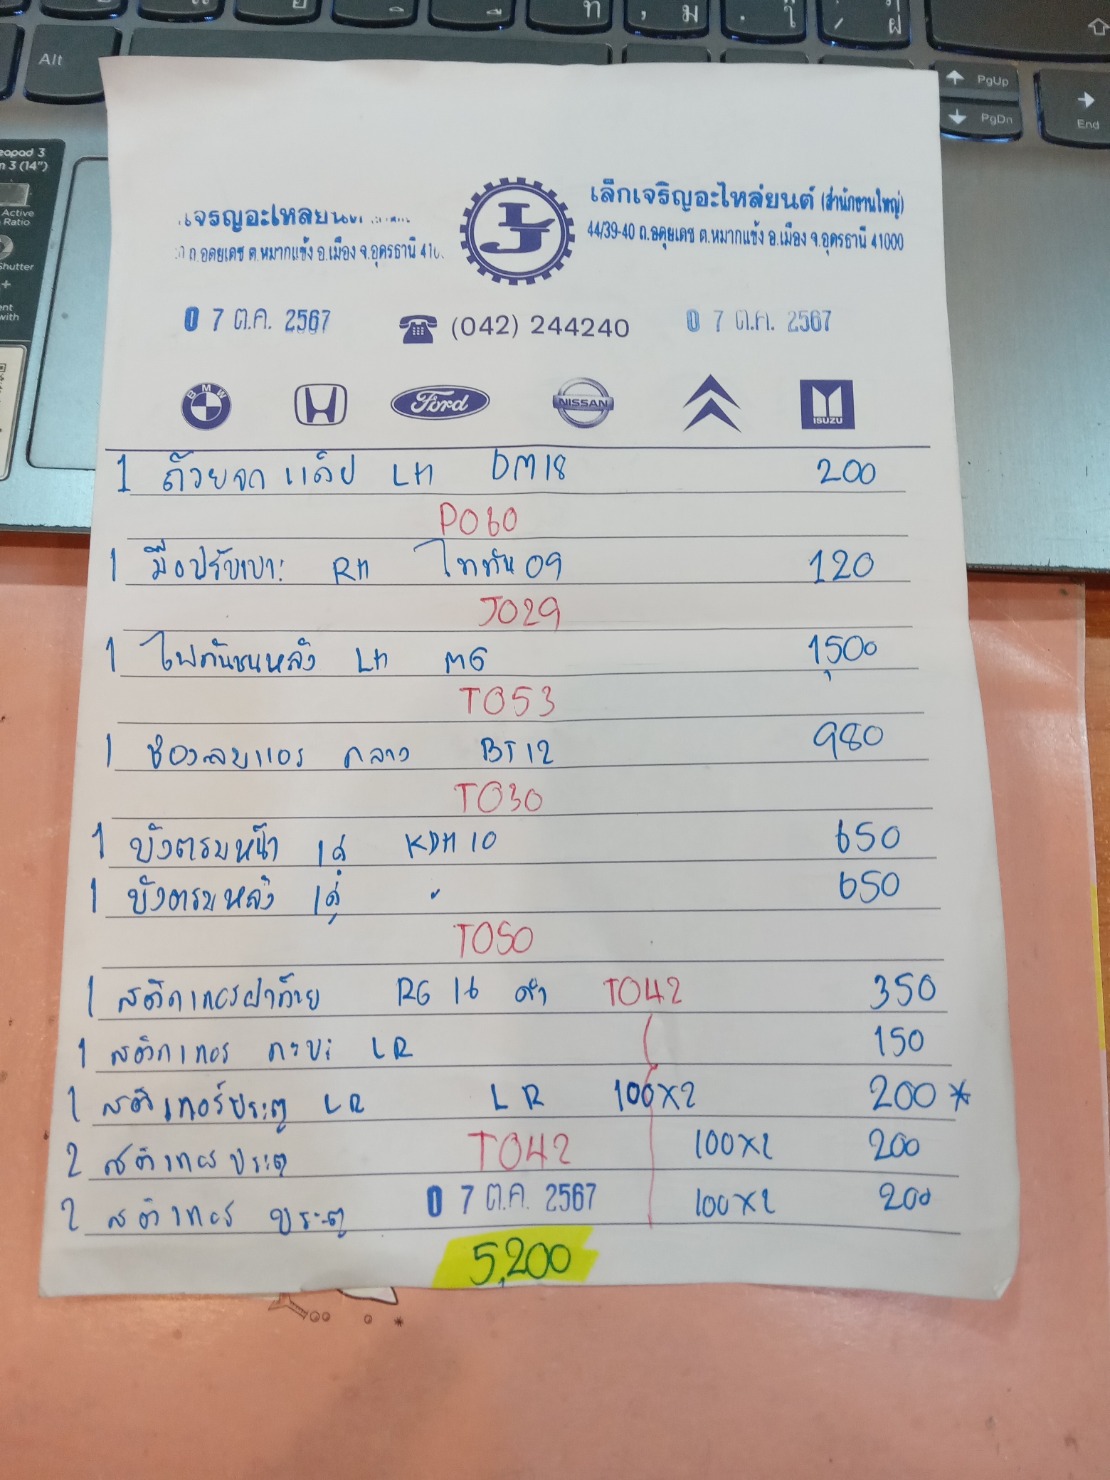 Alt
PgUp
PgDn
End
เล็กเจริญอะไหล่ยนต์ (สำนักงานใหญ่)
44/39-40 ถ.อดุยเดช ต.หมากแข้ง อ.เมือง จ.อุดรธานี 41000
LJ
0 7 ต.ค. 2567
(042) 244240
0 7 ต.ค. 2567
BMW
Ford
NISSAN
ISUZU
1 LH DM18 200
P060
1 มือปรับเบาะ RH ไททัน 09 120
J029
1 ไฟกันชนหลัง LH MG 1,500
T053
1 ช่องลมแอร์ กลาง BT12 980
T030
1 บังตรมหน้า 1คู่ KDH10 650
1 บังตรมหลัง 1คู่ " 650
T050
1 สติกเกอร์ฝาท้าย RG 16 ดำ T042 350
1 สติกเกอร์ กระบะ LR 150
1 สติกเกอร์ประตู LR LR 100x2 200 *
2 สติกเกอร์ ประตู T042 100x2 200
2 สติกเกอร์ ประตู 0 7 ต.ค. 2567 100x2 200
5,200